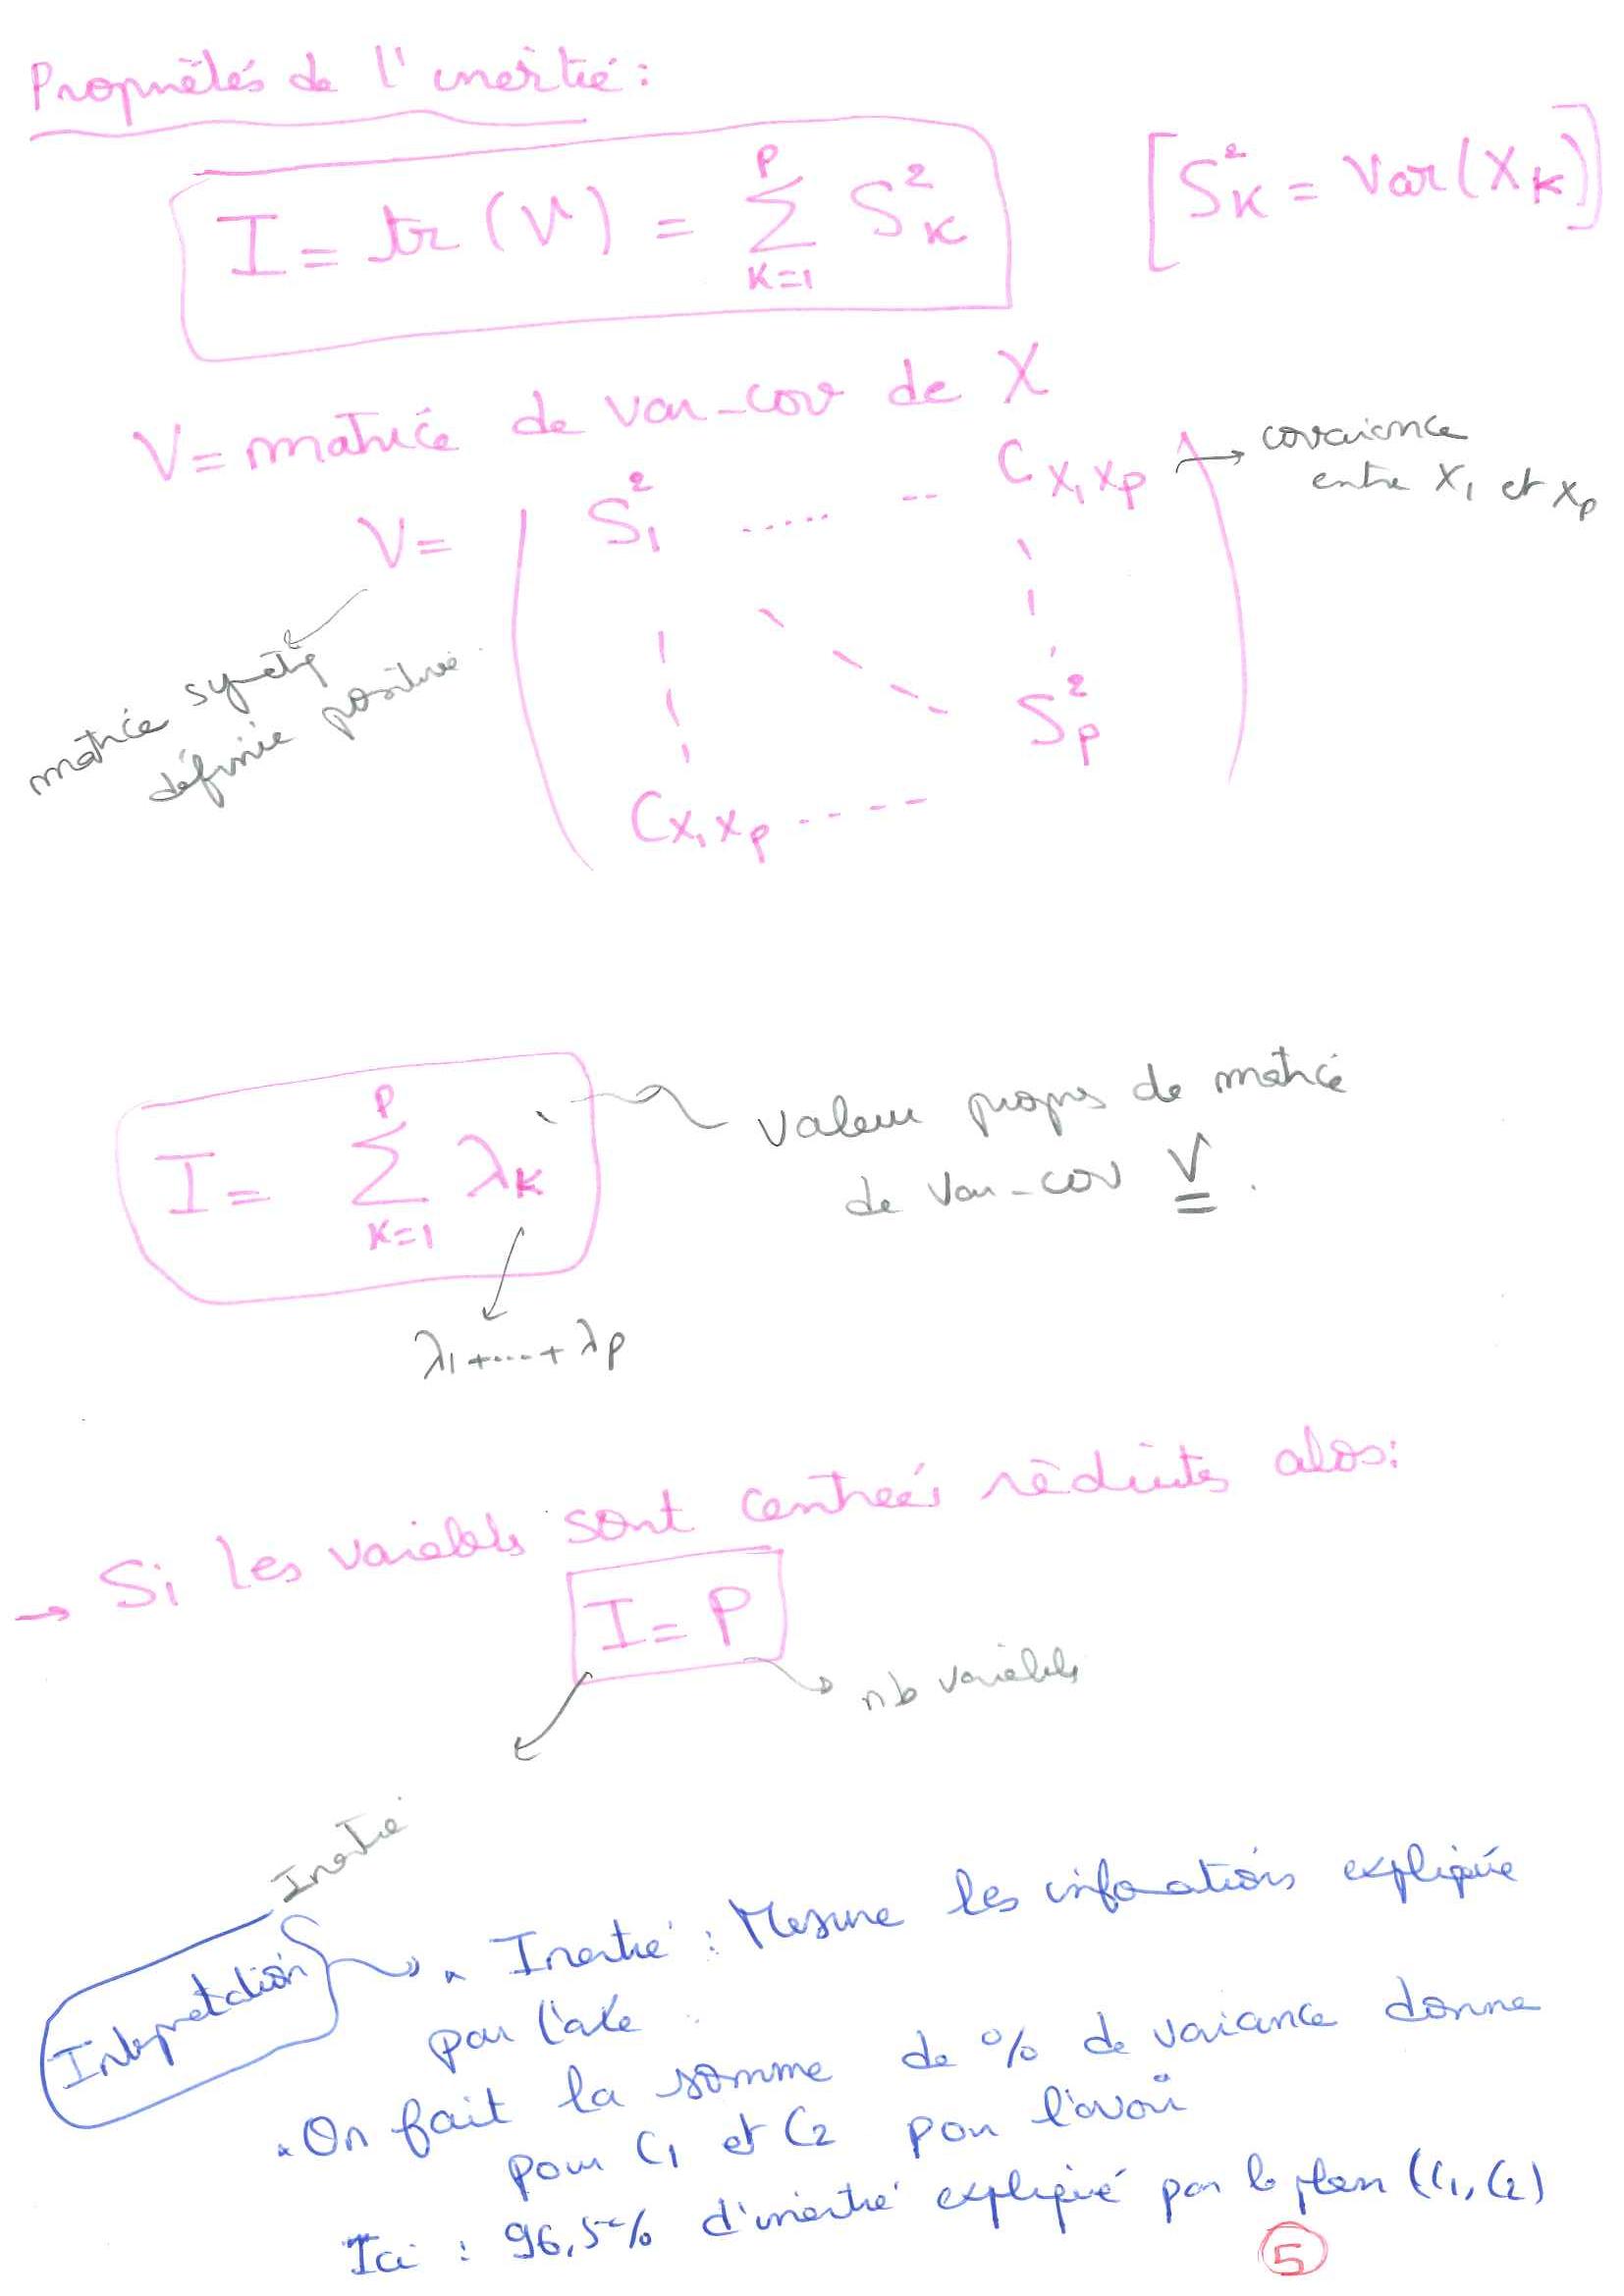 Propriétés de l'inertie :
I = tr (V) = ∑_{K=1}^{P} S_K^2 [S_K^2 = Var(X_K)]
V = matrice de var-cov de X
V = ( S_1^2 ..... -- C_{X_1 X_P} → covariance
entre X_1 et X_p
S_p^2
C_{X_1 X_p} ----- )
matrice symétq
définie positive
I = ∑_{K=1}^{P} λ_K valeur propres de matrice
de var-cov V.
λ_1 + .... + λ_p
→ Si les variables sont centrées réduites alos:
I = P
nb variables
Inertie
Interpretation
. Inertie : Mesure les informations expliquée
par l'axe.
. On fait la somme de % de variance donne
pour C_1 et C_2 pour l'avoir
Ici : 96,5% d'inertie expliqué par le plan (C_1, C_2)
5